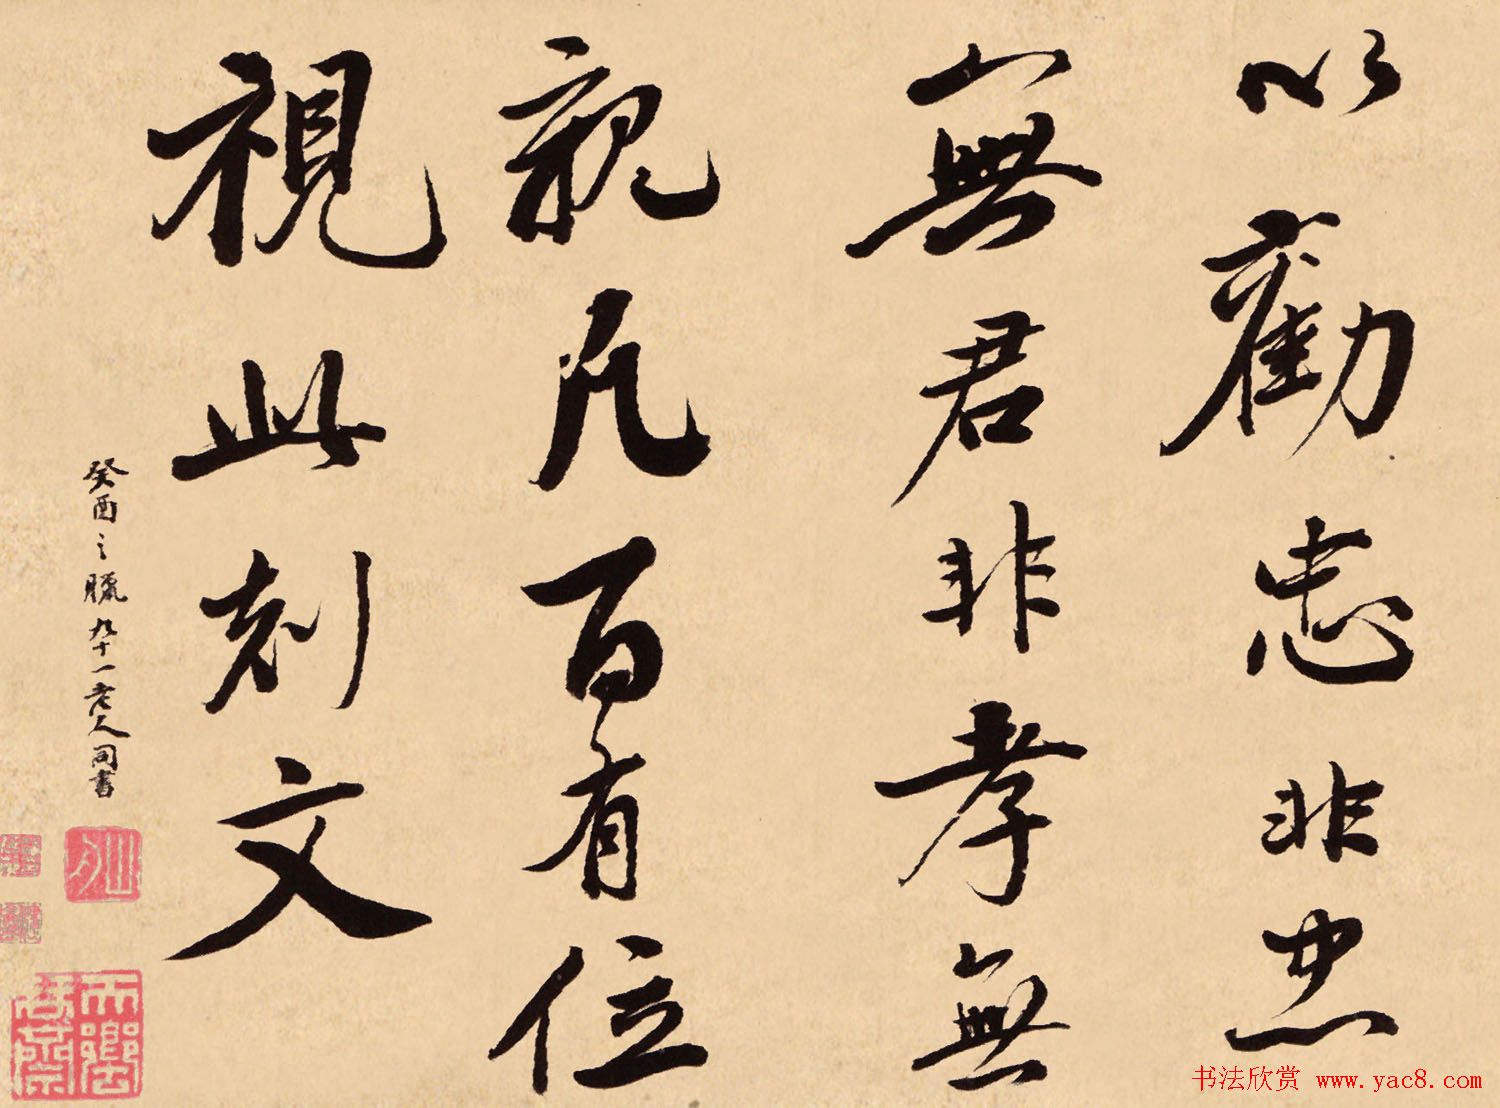 以勸忠非忠
無君非孝無
親凡百有位
視此刻文
癸酉之臘九十一老人同書
书法欣赏 www.yac8.com